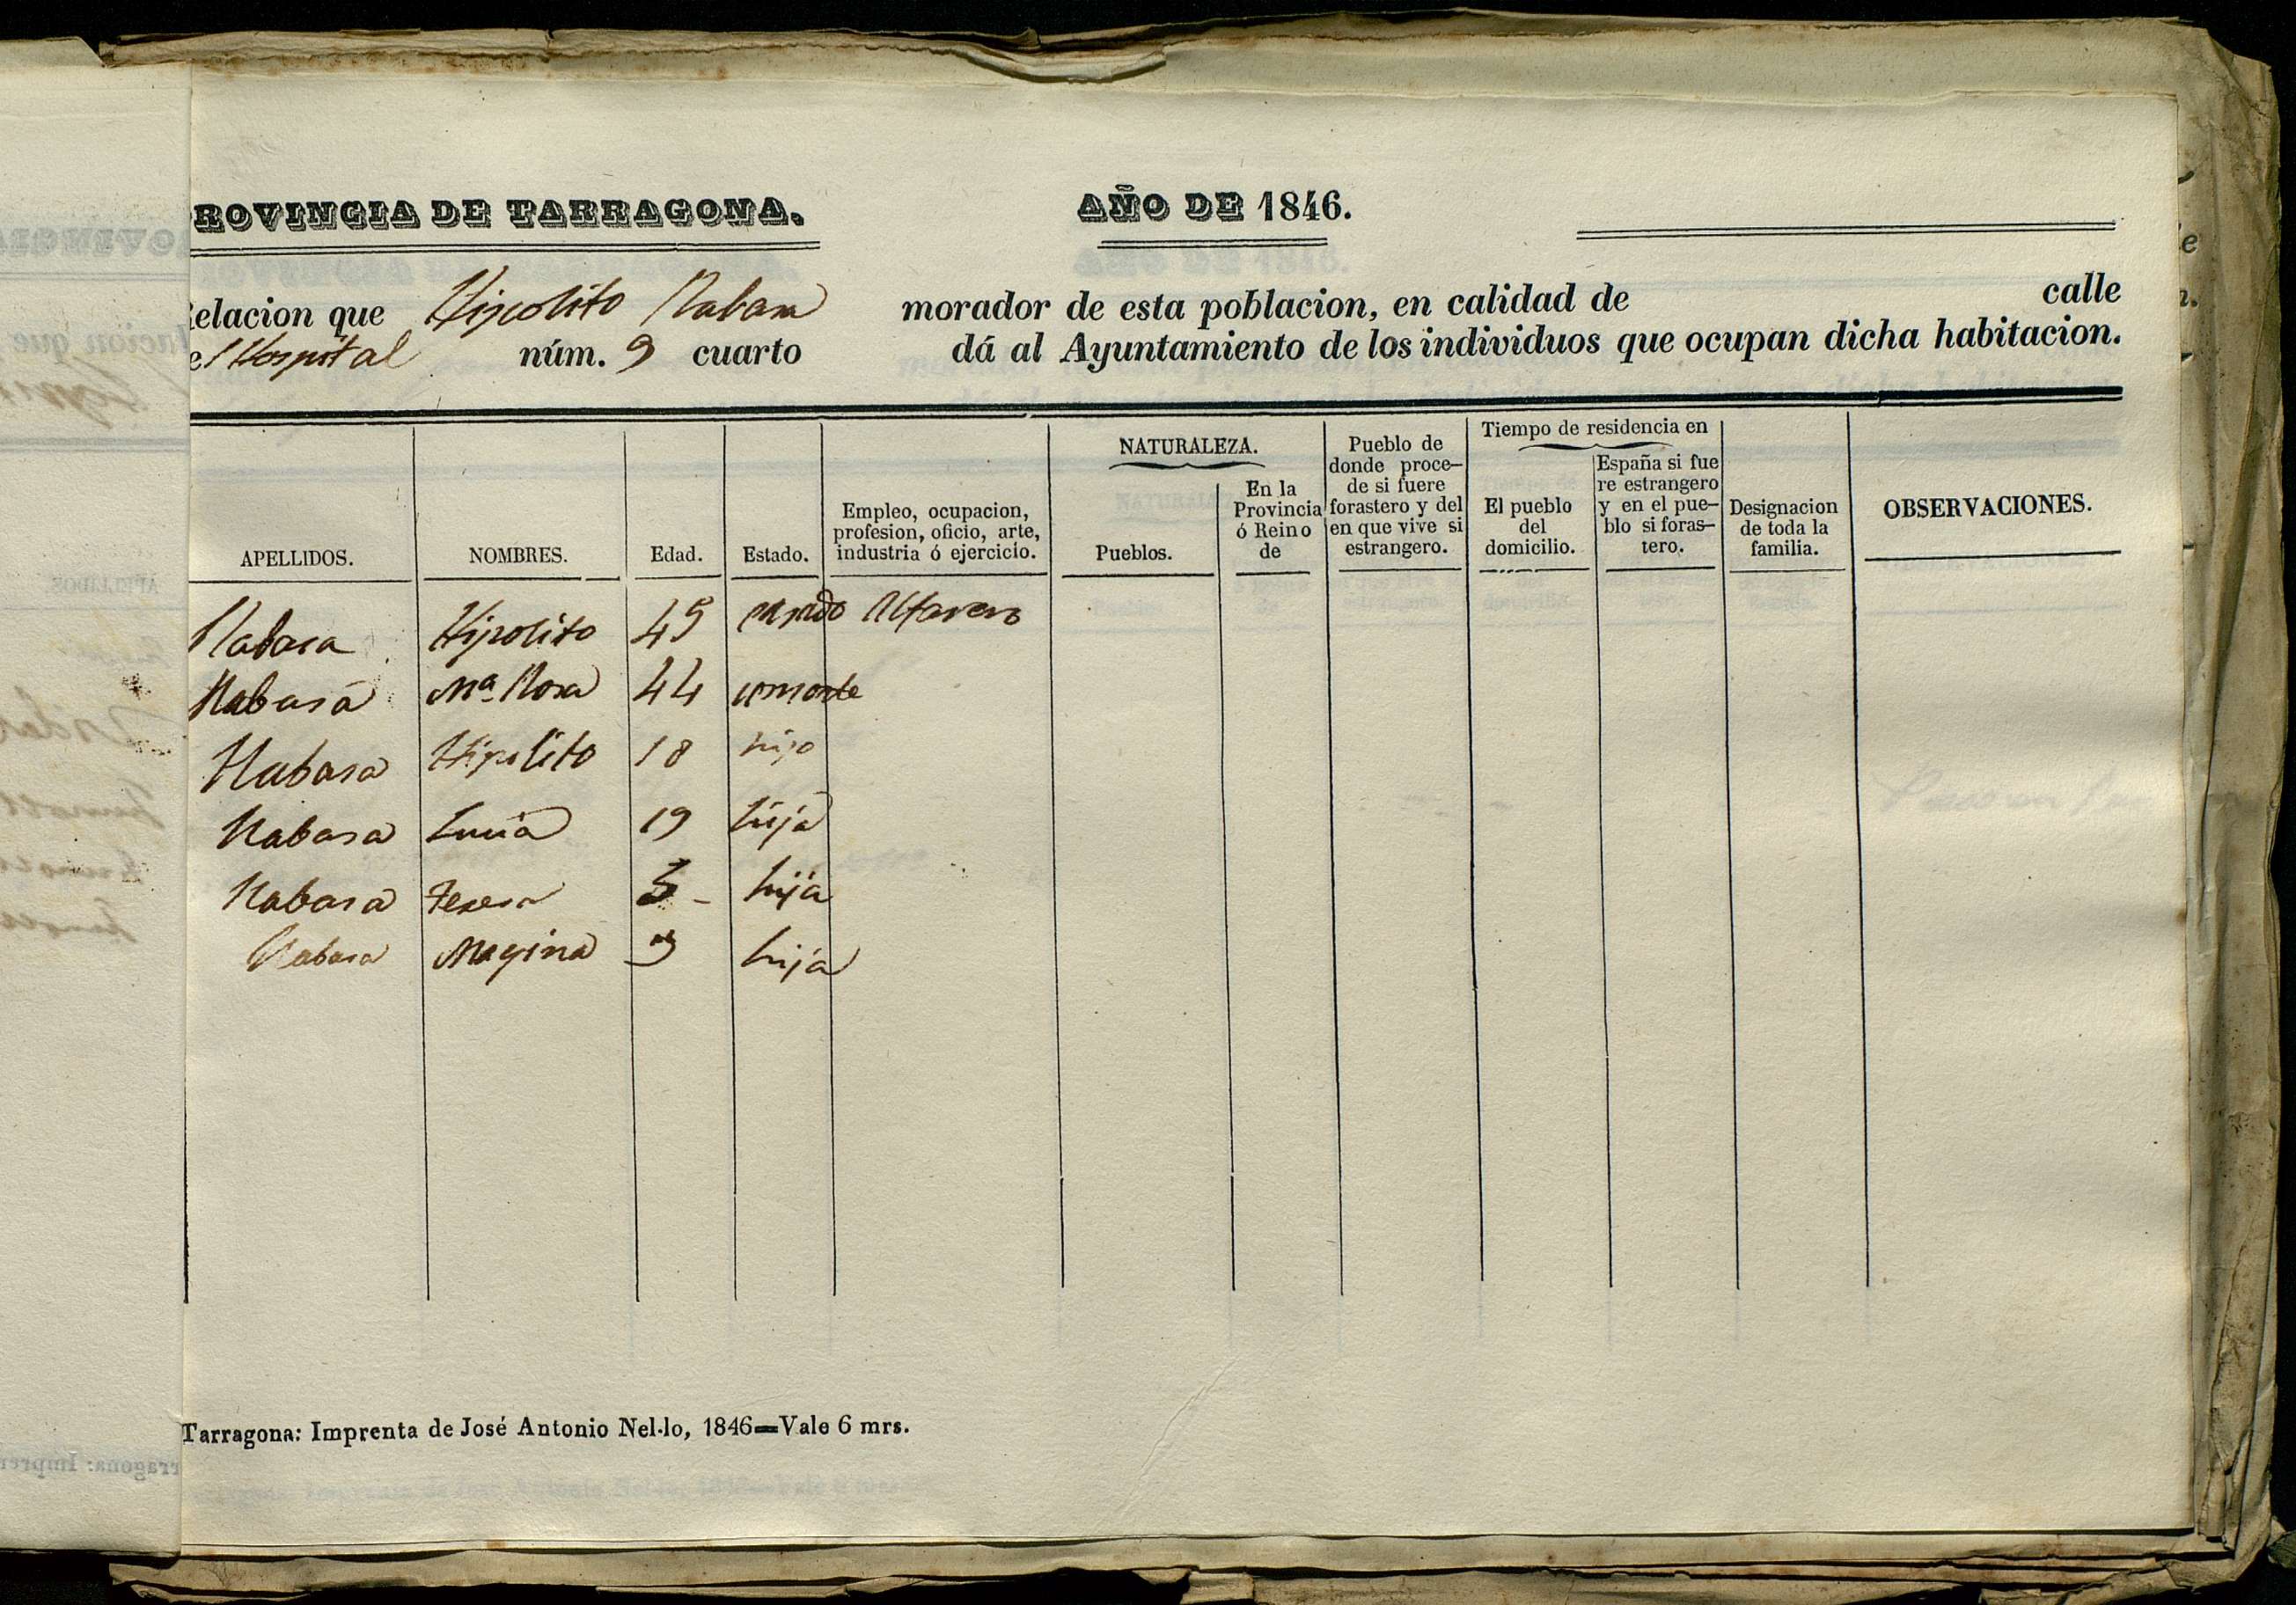 ROVINCIA DE TARRAGONA.
AÑO DE 1846.
elacion que Hipolito Nabasa morador de esta poblacion, en calidad de calle
el Hospital núm. 9 cuarto dá al Ayuntamiento de los individuos que ocupan dicha habitacion.
APELLIDOS.
NOMBRES.
Edad.
Estado.
Empleo, ocupacion,
profesion, oficio, arte,
industria ó ejercicio.
NATURALEZA.
Pueblos.
En la
Provincia
ó Reino
de
Pueblo de
donde proce-
de si fuere
forastero y del
en que vive si
estrangero.
Tiempo de residencia en
El pueblo
del
domicilio.
España si fue
re estrangero
y en el pue-
blo si foras-
tero.
Designacion
de toda la
familia.
OBSERVACIONES.
Nabasa Hipolito 49 casado Alfarero
Nabasa Mª Rosa 44 consorte
Nabasa Hipolito 18 hijo
Nabasa Lucia 19 hija
Nabasa Teresa 5 - hija
Nabasa Magina 3 hija
Tarragona: Imprenta de José Antonio Nel·lo, 1846=Vale 6 mrs.